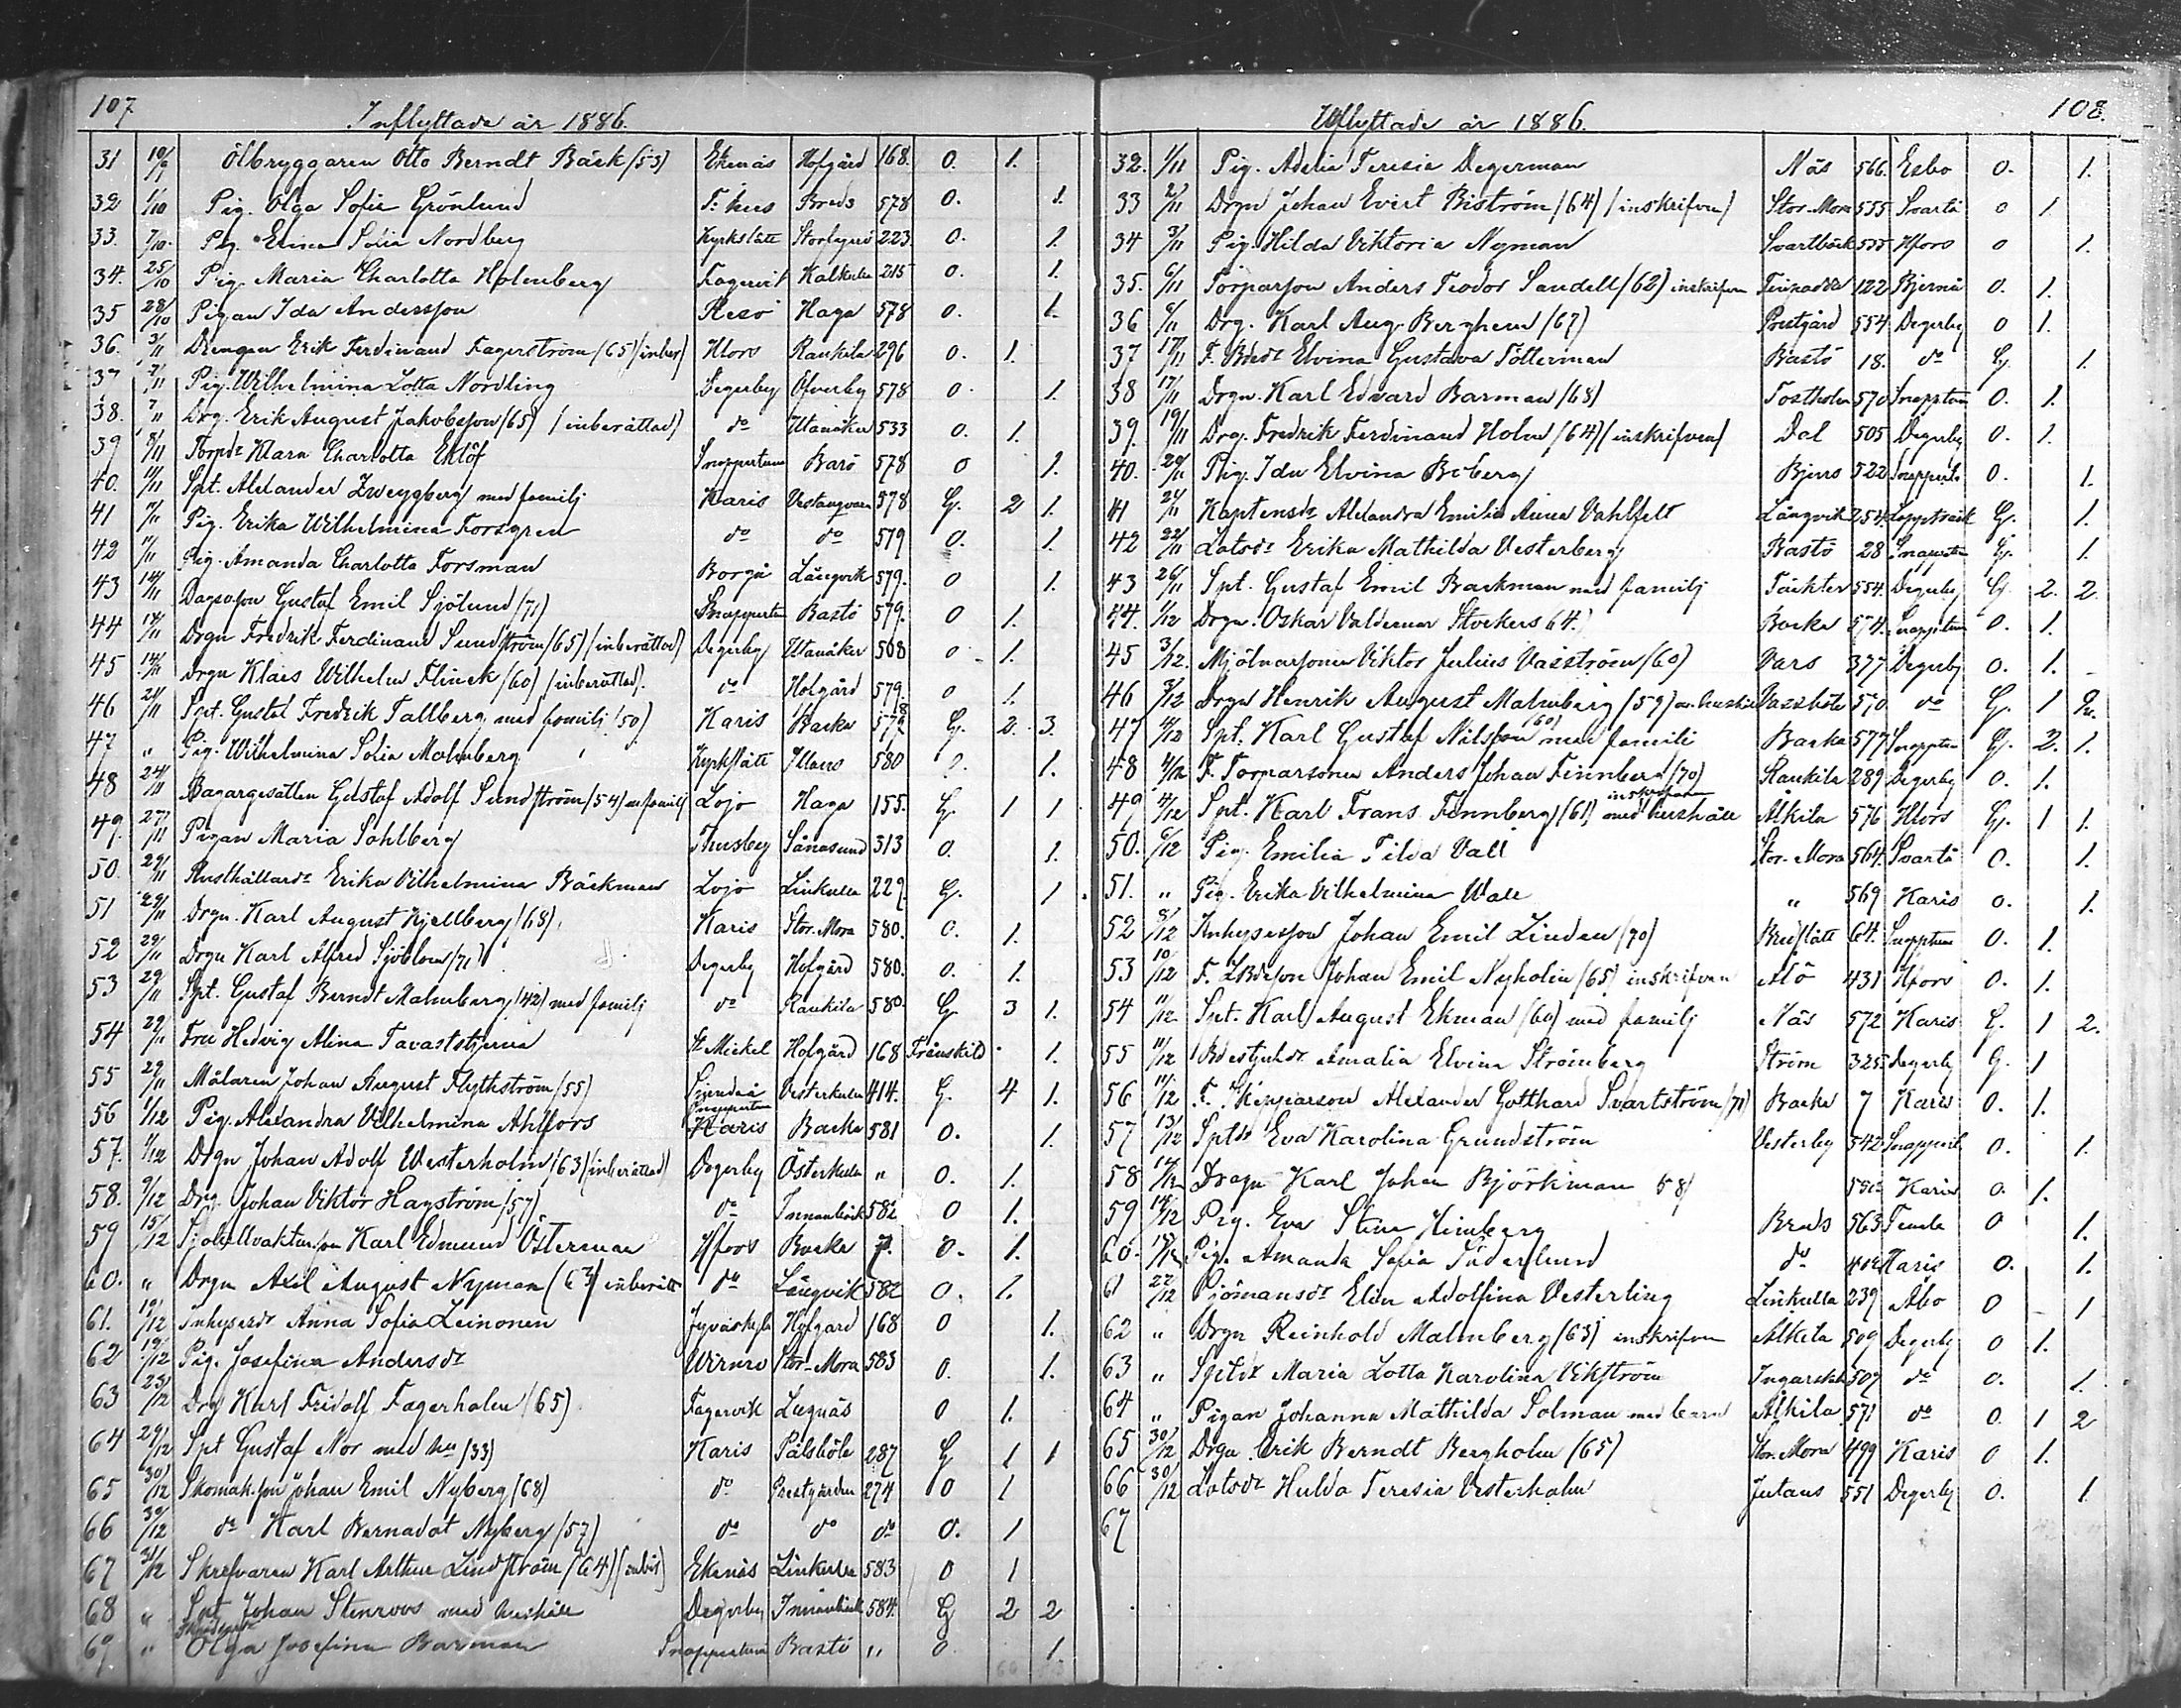 107
Inflyttade år 1886.
31 10/7 Ölbryggaren Otto Berndt Bäck (53) Ekenäs Hofgård 168. O. 1.
32 1/10 Pig. Olga Sofie Grönlund Breds 578 O. 1.
33. 7/10. Pig. Sofia Nordberg Kyrkslätt 223. O. 1.
34. 25/10 Pig. Maria Charlotta Holmberg Fagervik Kalkulla 215 O. 1.
35 28/10 Pigan Ida Andersson Resö Haga 578 O. 1.
36. 3/11 Drengen Erik Ferdinand Fagerström (65) (inber) Hfors Rankila 296 O. 1.
37 7/11 Pig. Wilhelmina Lotta Nordling Degerby Öfverby 578 O. 1.
38. 7/11 Drg. Erik August Jakobsson (65) (inberättad) do Utanåker 533 O. 1.
39 8/11 Torpdr Klara Charlotta Eklöf Snappertuna Barö 578 O 1.
40. 11/11 Spt. Alexander Zweygberg med familj Karis 578 G. 2 1.
41 11/11 Pig. Erika Wilhelmina Forsgren do do 579 O. 1.
42 11/11 Pig. Amanda Charlotta Forsman Borgå Långvik 579. O 1.
43 14/11 Gustaf Emil Sjölund (71) Snappertun Bastö 579. O 1.
44 14/11 Drgn Fredrik Ferdinand Sundström (65) (inberättad) Degerby Utanåker 568 O 1.
45 14/11 Drgn Klaes Wilhelm Flinck (60) (inberättad). do Hofgård 579. O 1.
46 21/11 Spt. Gustaf Fredrik Tallberg med familj (50) Karis Backa 579 G. 2. 3.
47 " Pig. Wilhelmina Sofia Malmberg Kyrkslätt 580 1.
48 24/11 Bagargesällen Gustaf Adolf Sundström (54) m familj Lojo Haga 155. G. 1 1
49. 27/11 Pigan Maria Sahlberg Thusby Sånasund 313 O. 1.
50. 29/11 Rusthållardr Erika Vilhelmina Bäckman Lojo Linkulla 229. G. 1
51 29/11 Drgn. Karl August Kjellberg (68) Karis Stor-Mora 580. O. 1.
52 29/11 Drgn Karl Alfred Sjöblom (71) Degerby Hofgård 580. O. 1.
53 29/11 Spt. Gustaf Berndt Malmberg (42) med familj do Rankila 580. G 3 1.
54 29/11 Fru Hedvig Alina Tavaststjerna St Mickel Hofgård 168 Frånskild 1.
55 29/11 Målaren Johan August Flythström (55) Sjundeå Vesterkulla 414. G. 4 1.
56 1/12 Pig. Alexandra Vilhelmina Ahlfors Snappertun Karis Backa 581 O. 1.
57. 1/12 Drgn Johan Adolf Westerholm (63) (inberättad) Degerby Österkulla " O. 1.
58. 9/12 Drg. Johan Viktor Hagström (57) do Innanbäck 582 O 1.
59 15/12 Karl Edmund Österman Hfors Backa 7. O. 1.
60. " Drgn Axel August Nyman (63) inberätt do Långvik 582 O. 1.
61. 19/12 Inhyserdr Anna Sofia Leinonen Jyväskylä Hofgård 168 O 1.
62 19/12 Pig. Josefina Andersdr Wirmo Stor-Mora 583 O. 1.
63 23/12 Drg Karl Fridolf Fagerholm (65) Fagervik Lugnäs O 1.
64 29/12 Spt Gustaf Nor med hu (33) Karis Pålsböle 287 G 1 1
65 30/12 Skomak.son Johan Emil Nyberg (68) do Prestgården 274 O 1
66 30/12 do Karl Bernadot Nyberg (57) do do do O. 1
67 31/12 Skrefvaren Karl Arthur Lindström (64) Ekenäs Linkulla 583 O 1
68 " Spt Johan Stenroos med hushåll Degerby Innanbäck 584. G 2 2
69 " Olga Josefina Barman Snappertuna Bastö " O 1.
108.
Utflyttade år 1886.
32. 1/11 Pig. Adelia Teresia Degerman Näs 566. Esbo O. 1.
33 2/11 Drgn Johan Evert Biström (64) (inskrifven) Stor-Mora 555 Svartå O 1.
34 3/11 Pig. Hilda Viktoria Nyman Svartbäck 555 Hfors O 1.
35. 6/11 Torparson Anders Teodor Sandell (62) inskrifven 122 Bjernå O. 1.
36 6/11 Drg. Karl Aug. Berghem (67) Prestgård 554. Degerby O 1.
37 17/11 F. Elvina Gustava Tötterman Bastö 18. do G. 1.
38 17/11 Drgn. Karl Edvard Barman (68) Tostholm 570 Snapptuna O. 1.
39. 19/11 Drg. Fredrik Ferdinand Holm (64) (inskrifven) Dal 505 Degerby O. 1.
40. 20/11 Pig. Ida Elvina Boberg Bjers 522 O. 1.
41 21/11 Kaptensdr Alexandra Emilia Anna Vahlfelt Långvik 254 Lappträsk G. 1.
42 22/11 Lotsdr Erika Mathilda Vesterberg Bastö 28 G. 1.
43 26/11 Spt. Gustaf Emil Backman med familj Täckter 554. Degerby G. 2. 2.
44. 1/12 Drgn. Oskar Valdemar Stockers 64.) Backa 574. Snapptuna O. 1.
45 3/12. Mjölnarsonen Viktor Julius Vasström (60) Vars 377 Degerby O. 1.
46 3/12 Drgn Henrik August Malmberg (59) m. hustru 570 do G. 1
47 4/12 Spt. Karl Gustaf Nilsson (60) med familj Backa 577 Snapptun G. 2. 1.
48 4/12 F. Torparsonen Anders Johan Finnberg (70) Rankila 289 Degerby O. 1.
49 4/12 Spt. Karl Frans Finnberg (61) inskrifven med hushåll Alkila 576 Hfors G. 1 1.
50. 6/12 Pig. Emilia Tilda Vall Stor-Mora 564. Svartå O. 1.
51. " Pig. Erika Vilhelmina Wall " 569 Karis O. 1.
52 8/12 Inhysesson Johan Emil Linden (70) 64. Snapptuna O. 1.
53 10/12 F. Johan Emil Nyholm (65) inskrifven Alö 431 Hfors O. 1.
54 11/12 Spt. Karl August Ekman (60) med familj Näs 572 Karis G. 1 2.
55 11/12 Amalia Elvina Strömberg Ström 325. Degerby G. 1
56 11/12 F. Skepparson Alexander Gotthard Svartström (71) Backa 7 Karis O. 1.
57 13/12 Sptdr Eva Karolina Grundström Vesterby 542 O. 1.
58 14/12 Drgn Karl Johan Björkman 58) Karis O. 1.
59 18/12 Pig. Eva Stina Himberg Breds 563 Tenala O 1.
60. 18/12 Pig. Amanda Sofia Söderlund do Karis O. 1.
61 22/12 Elin Adolfina Vesterling Linkulla 239 Åbo O 1
62 " Drgn Reinhold Malmberg (63) inskrifven Alkila 509 Degerby O 1.
63 " Sptdr Maria Lotta Karolina Vikström Ingarskila 507 do O. 1.
64 " Pigan Johanna Mathilda Solman med barn Alkila 571 do O. 1 2
65 30/12 Drgn Erik Berndt Bergholm (65) Stor-Mora 499 Karis O 1.
66 30/12 Lotsdr Hulda Teresia Vesterholm Jutans 551 Degerby O. 1
67